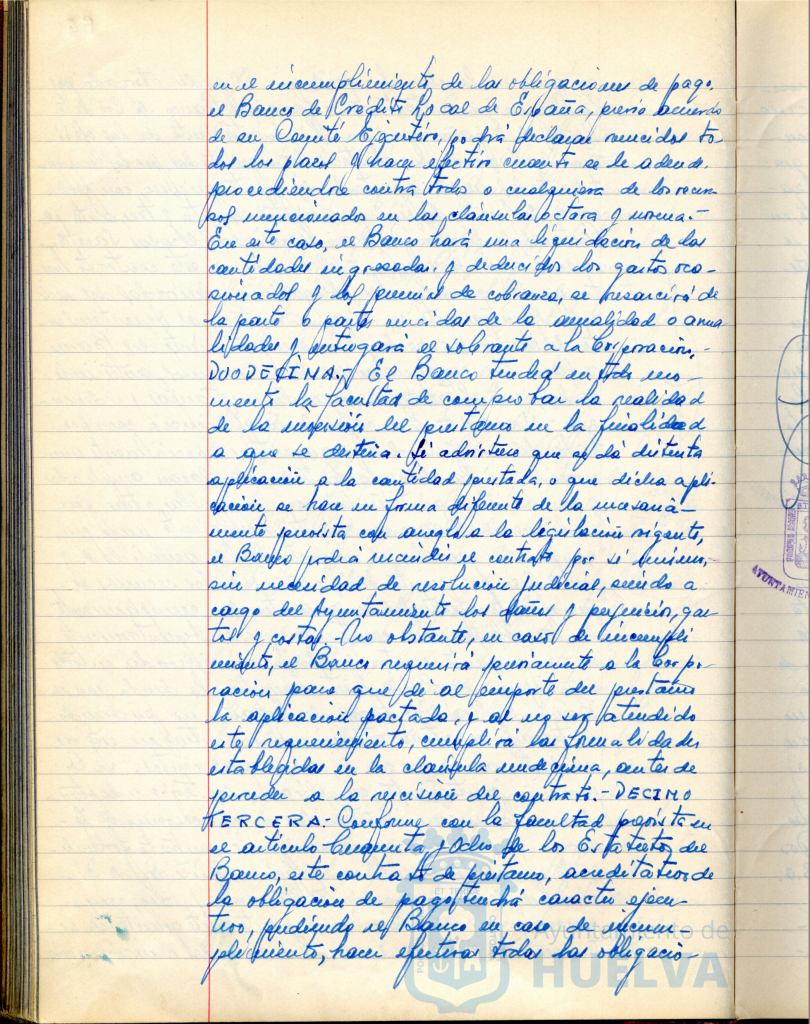 en el incumplimiento de las obligaciones de pago,
el Banco de Crédito Local de España, previo acuerdo
de su Comité Ejecutivo, podrá declarar vencidos to-
dos los plazos y hacer efectivo cuanto se le adeude,
procediéndose contra todos o cualquiera de los recur-
sos mencionados en las cláusulas octava y novena.-
En este caso, el Banco hará una liquidación de las
cantidades ingresadas, y deducidos los gastos oca-
sionados y los premios de cobranza, se resarcirá de
la parte o partes vencidas de la anualidad o anua
lidades y entregará el sobrante a la Corporación.-
DUODECIMA.- El Banco tendrá en todo mo-
mento la facultad de comprobar la realidad
de la inversión del préstamo en la finalidad
a que se destina. Si advirtiere que se dá distinta
aplicación a la cantidad prestada, o que dicha apli-
cación se hace en forma diferente de la necesaria-
mente prevista con arreglo a la legislación vigente,
el Banco podrá rescindir el contrato por sí mismo,
sin necesidad de resolución judicial, siendo a
cargo del Ayuntamiento los daños y perjuicios, gas-
tos y costas.- No obstante, en caso de incumpli
miento, el Banco requerirá previamente a la Corpo-
ración para que dé al importe del préstamo
la aplicación pactada, y al no ser atendido
este requerimiento, cumplirá las formalidades
establecidas en la cláusula undécima, antes de
proceder a la rescisión del contrato.- DECIMO
TERCERA.- Conforme con la facultad prevista en
el artículo Cincuenta y Ocho de los Estatutos del
Banco, este contrato de préstamo, acreditativo de
la obligación de pago, tendrá caracter ejecu-
tivo, pudiendo el Banco en caso de incum
plimiento, hacer efectivas todas las obligacio-
AYUNTAMIEN
Ayuntamiento de
HUELVA